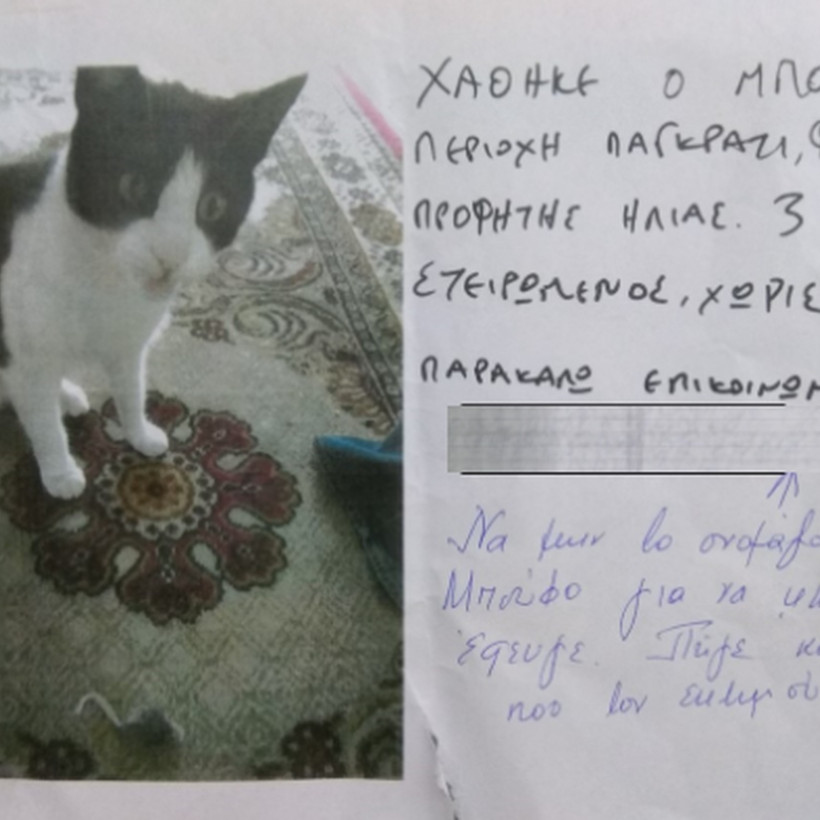 ΧΑΘΗΚΕ Ο ΜΠΟ
ΠΕΡΙΟΧΗ ΠΑΓΚΡΑΤΙ,
ΠΡΟΦΗΤΗΣ ΗΛΙΑΣ. 3
ΣΤΕΙΡΩΜΕΝΟΣ, ΧΩΡΙΣ
ΠΑΡΑΚΑΛΩ ΕΠΙΚΟΙΝΩΝ
Να μην το
Μπούφο για να μη
έφευγε. Πήγε
που τον